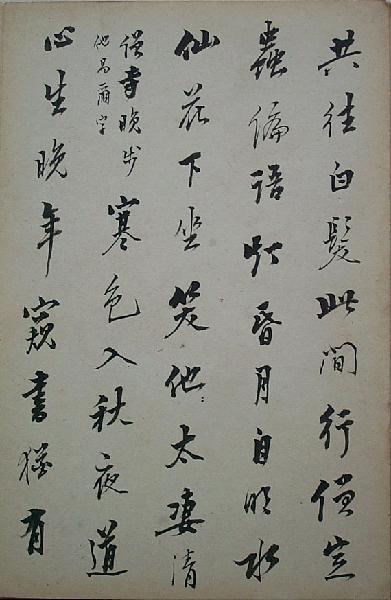 共往白髮此間行僧定
蟲偏語灯昏月自明水
仙花下坐笑他太凄清
僧寺晚步
他易爾字
寒色入秋夜道
心生晚年窺書猶有